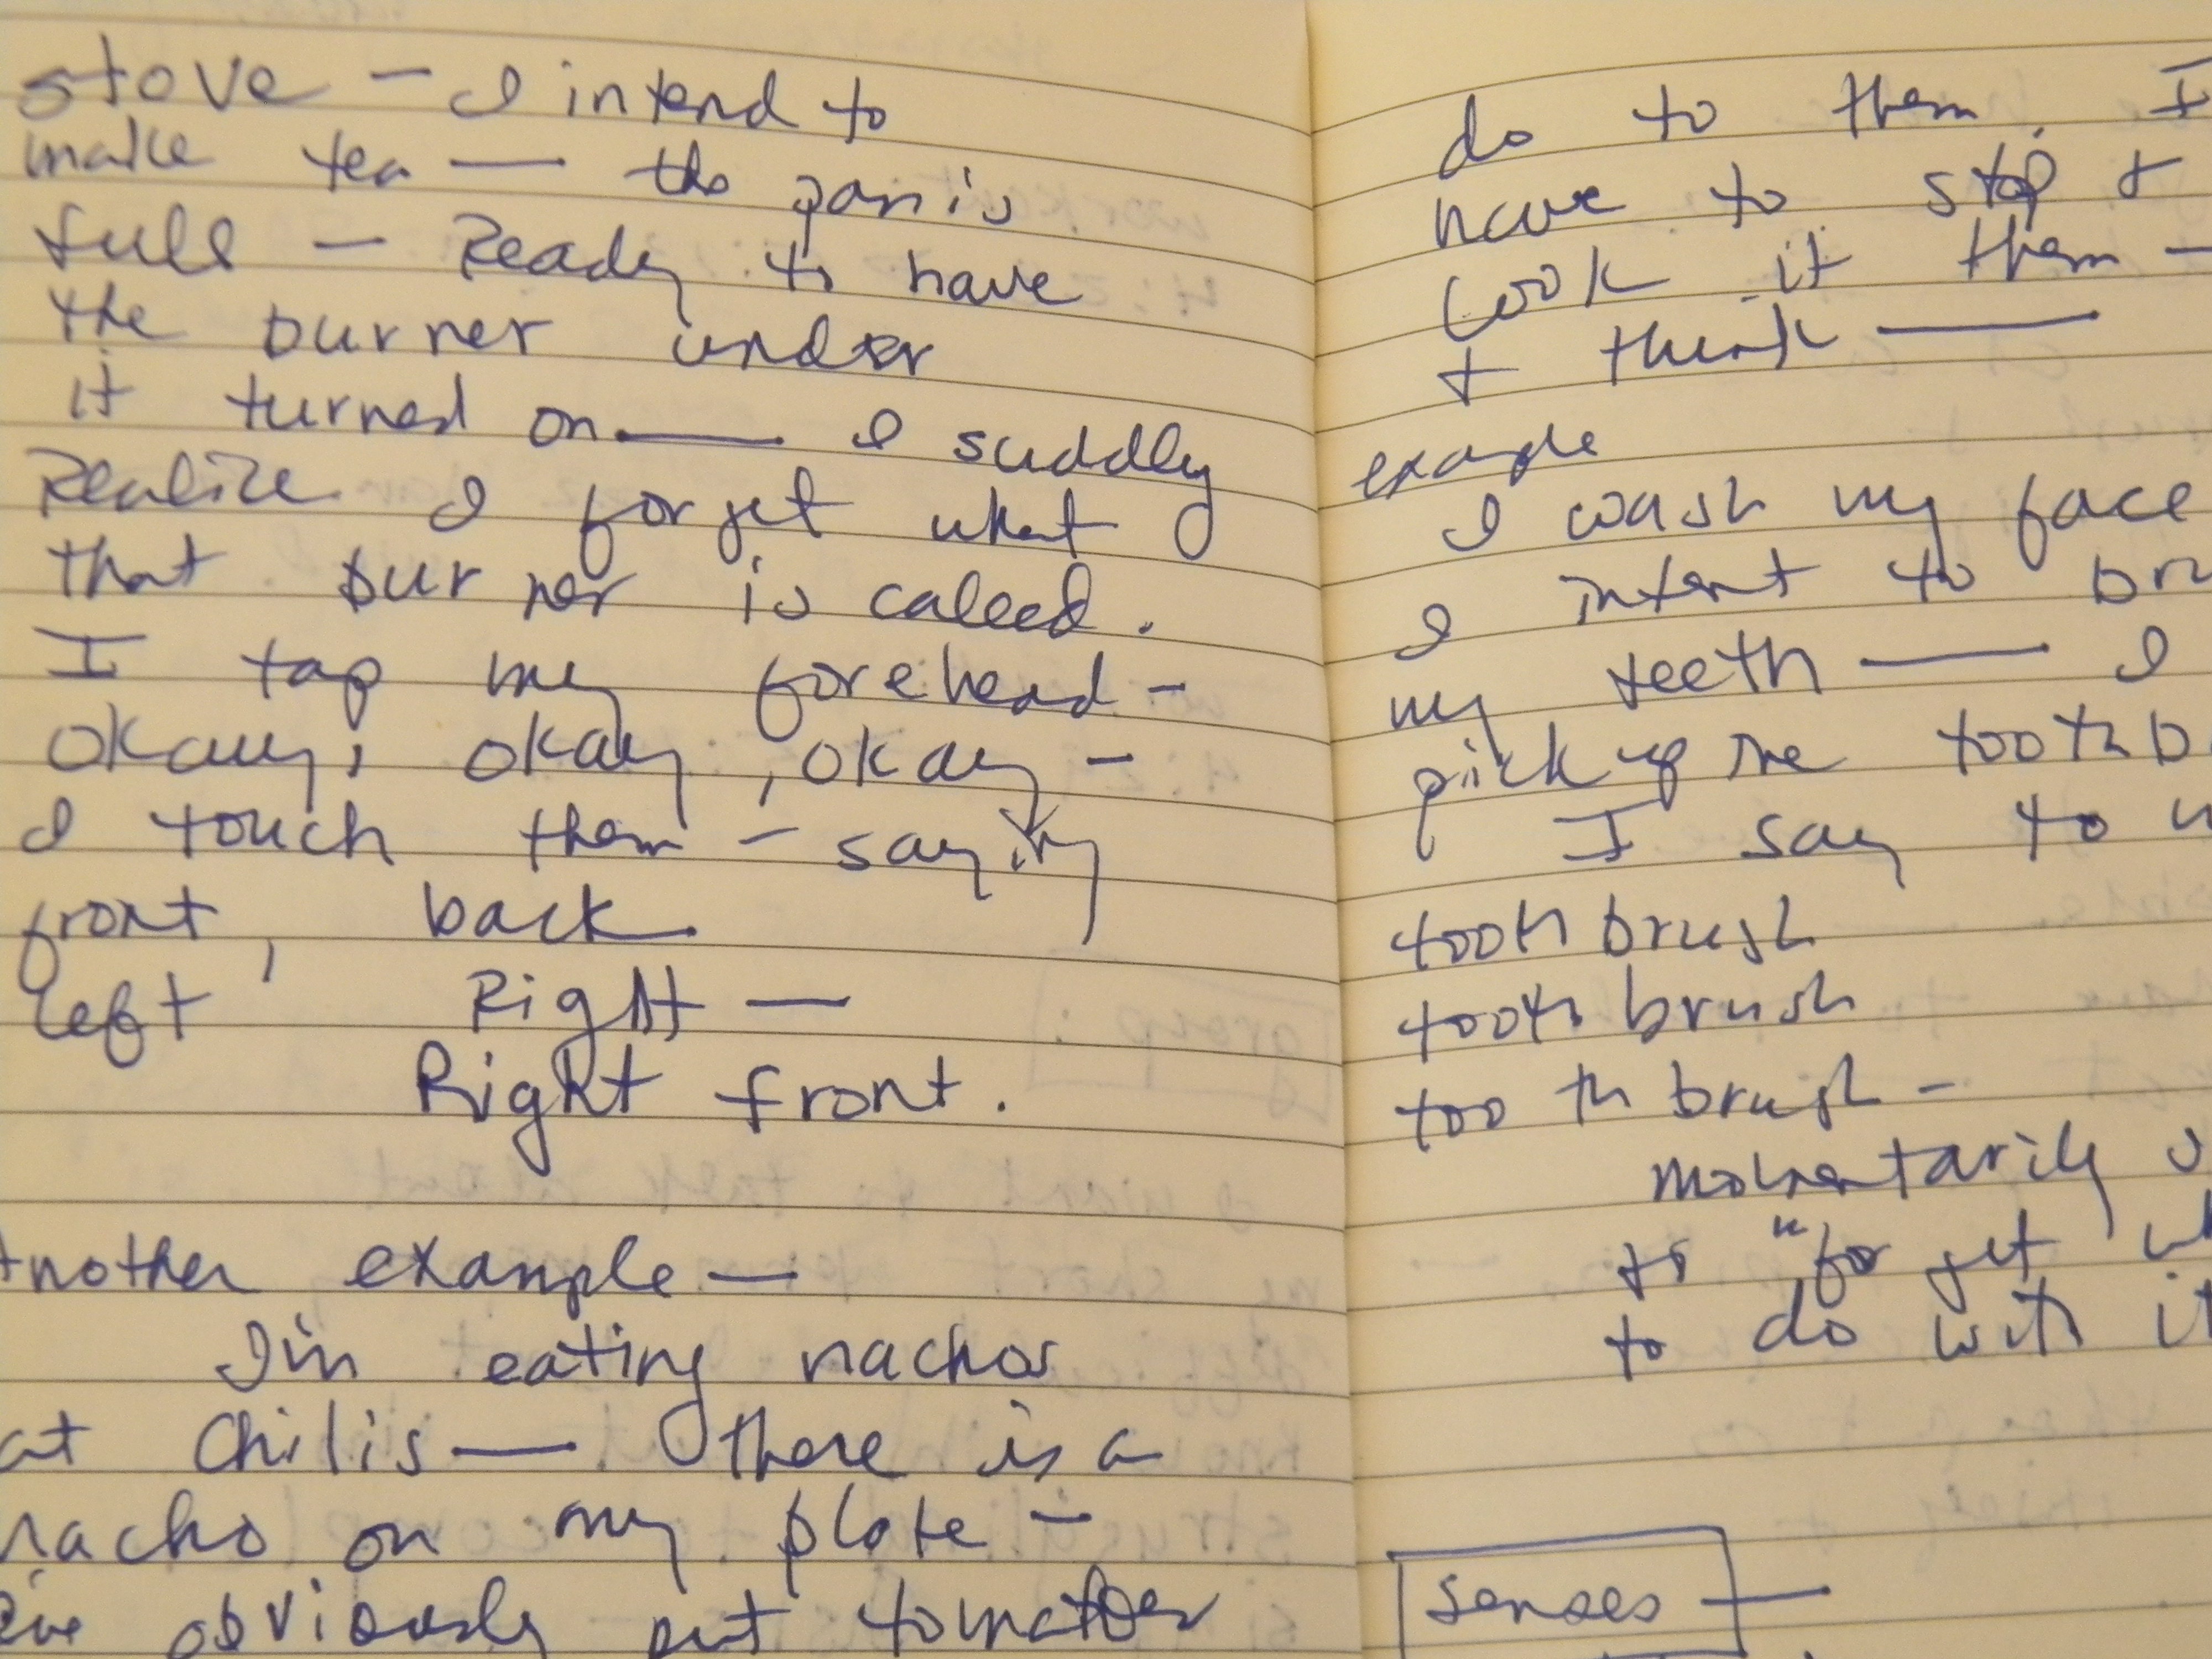 stove — I intend to
make tea — the pan is
full — Ready to have
the burner under
it turned on — I suddly
Realize I forget what
that burner is called.
I tap my forehead -
okay, okay, okay -
I touch them - saying
front, back
left Right —
Right front.
Another example —
I'm eating nachos
at Chilis — there is a
nacho on my plate -
obviously put tomatoes
do to them. I
have to stop +
look it them -
+ think —
example
I wash my face
I intent to
my teeth — I
pick up the
I say to
toothbrush
toothbrush
toothbrush -
momentarily
to "forget
to do with it
senses —